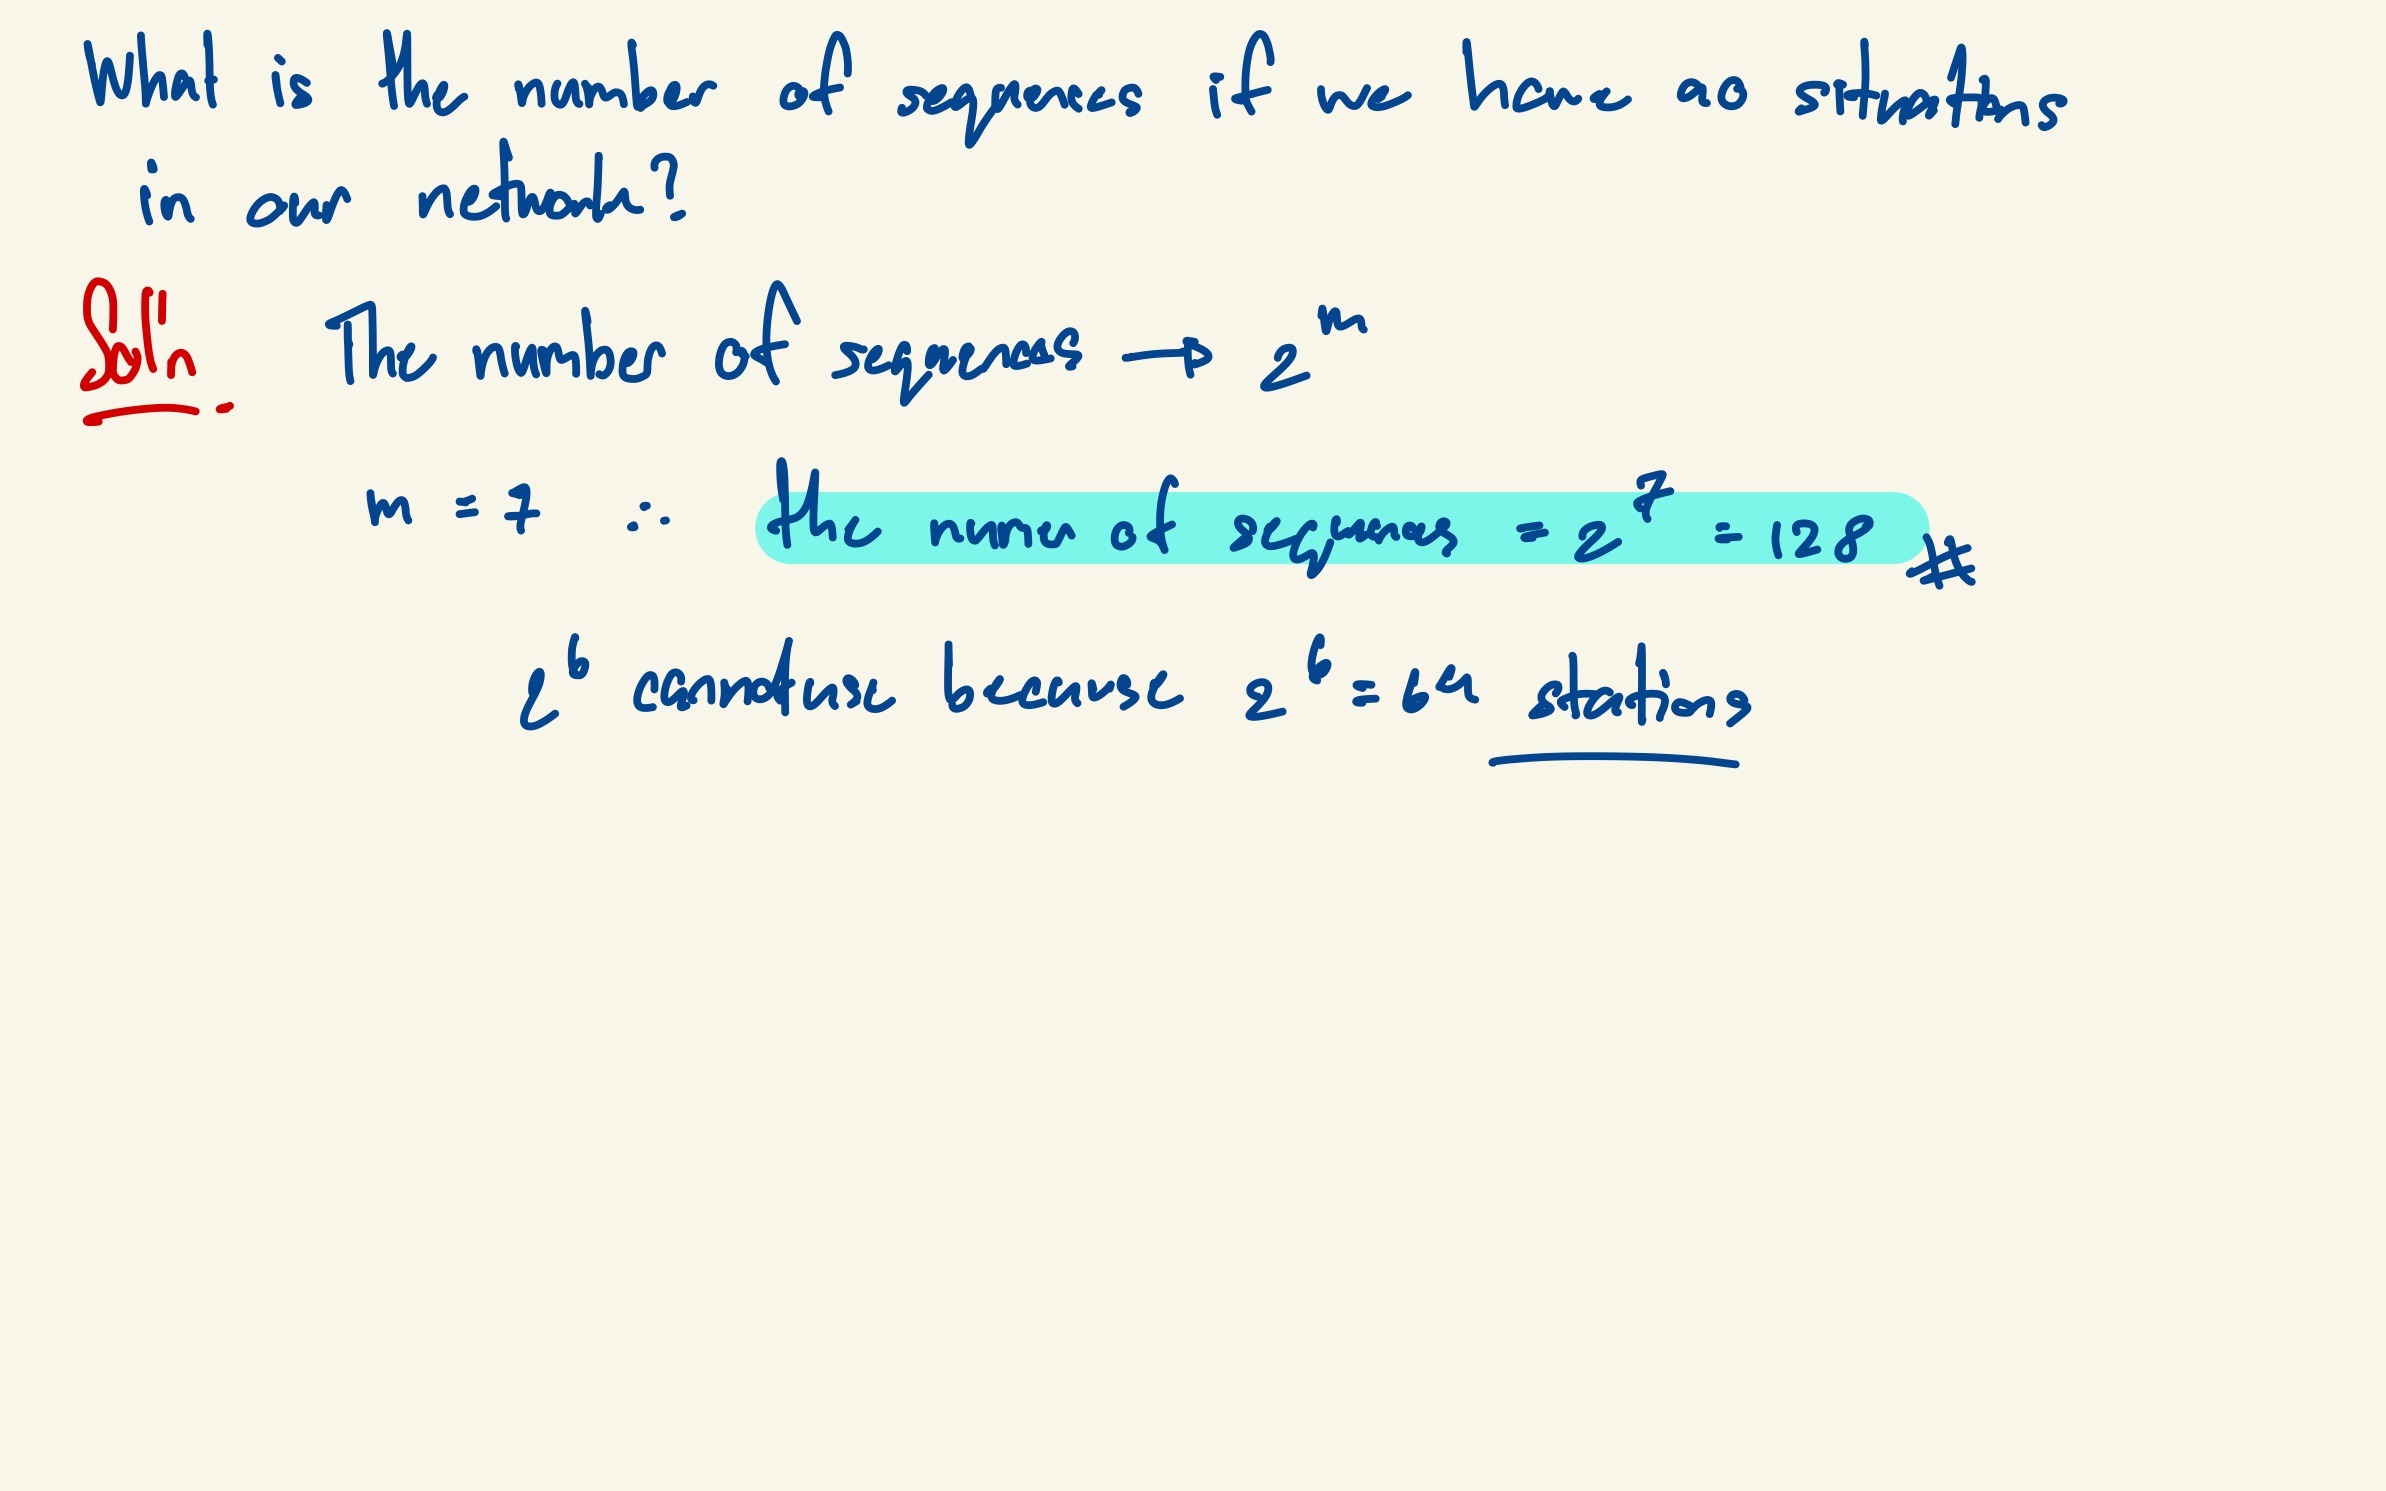 What is the number of sequences if we have 90 situations
in our network?
Sol'n The number of sequences → 2^m
m = 7 ∴ the number of sequences = 2^7 = 128 #
2^6 cannot use because 2^6 = 64 stations